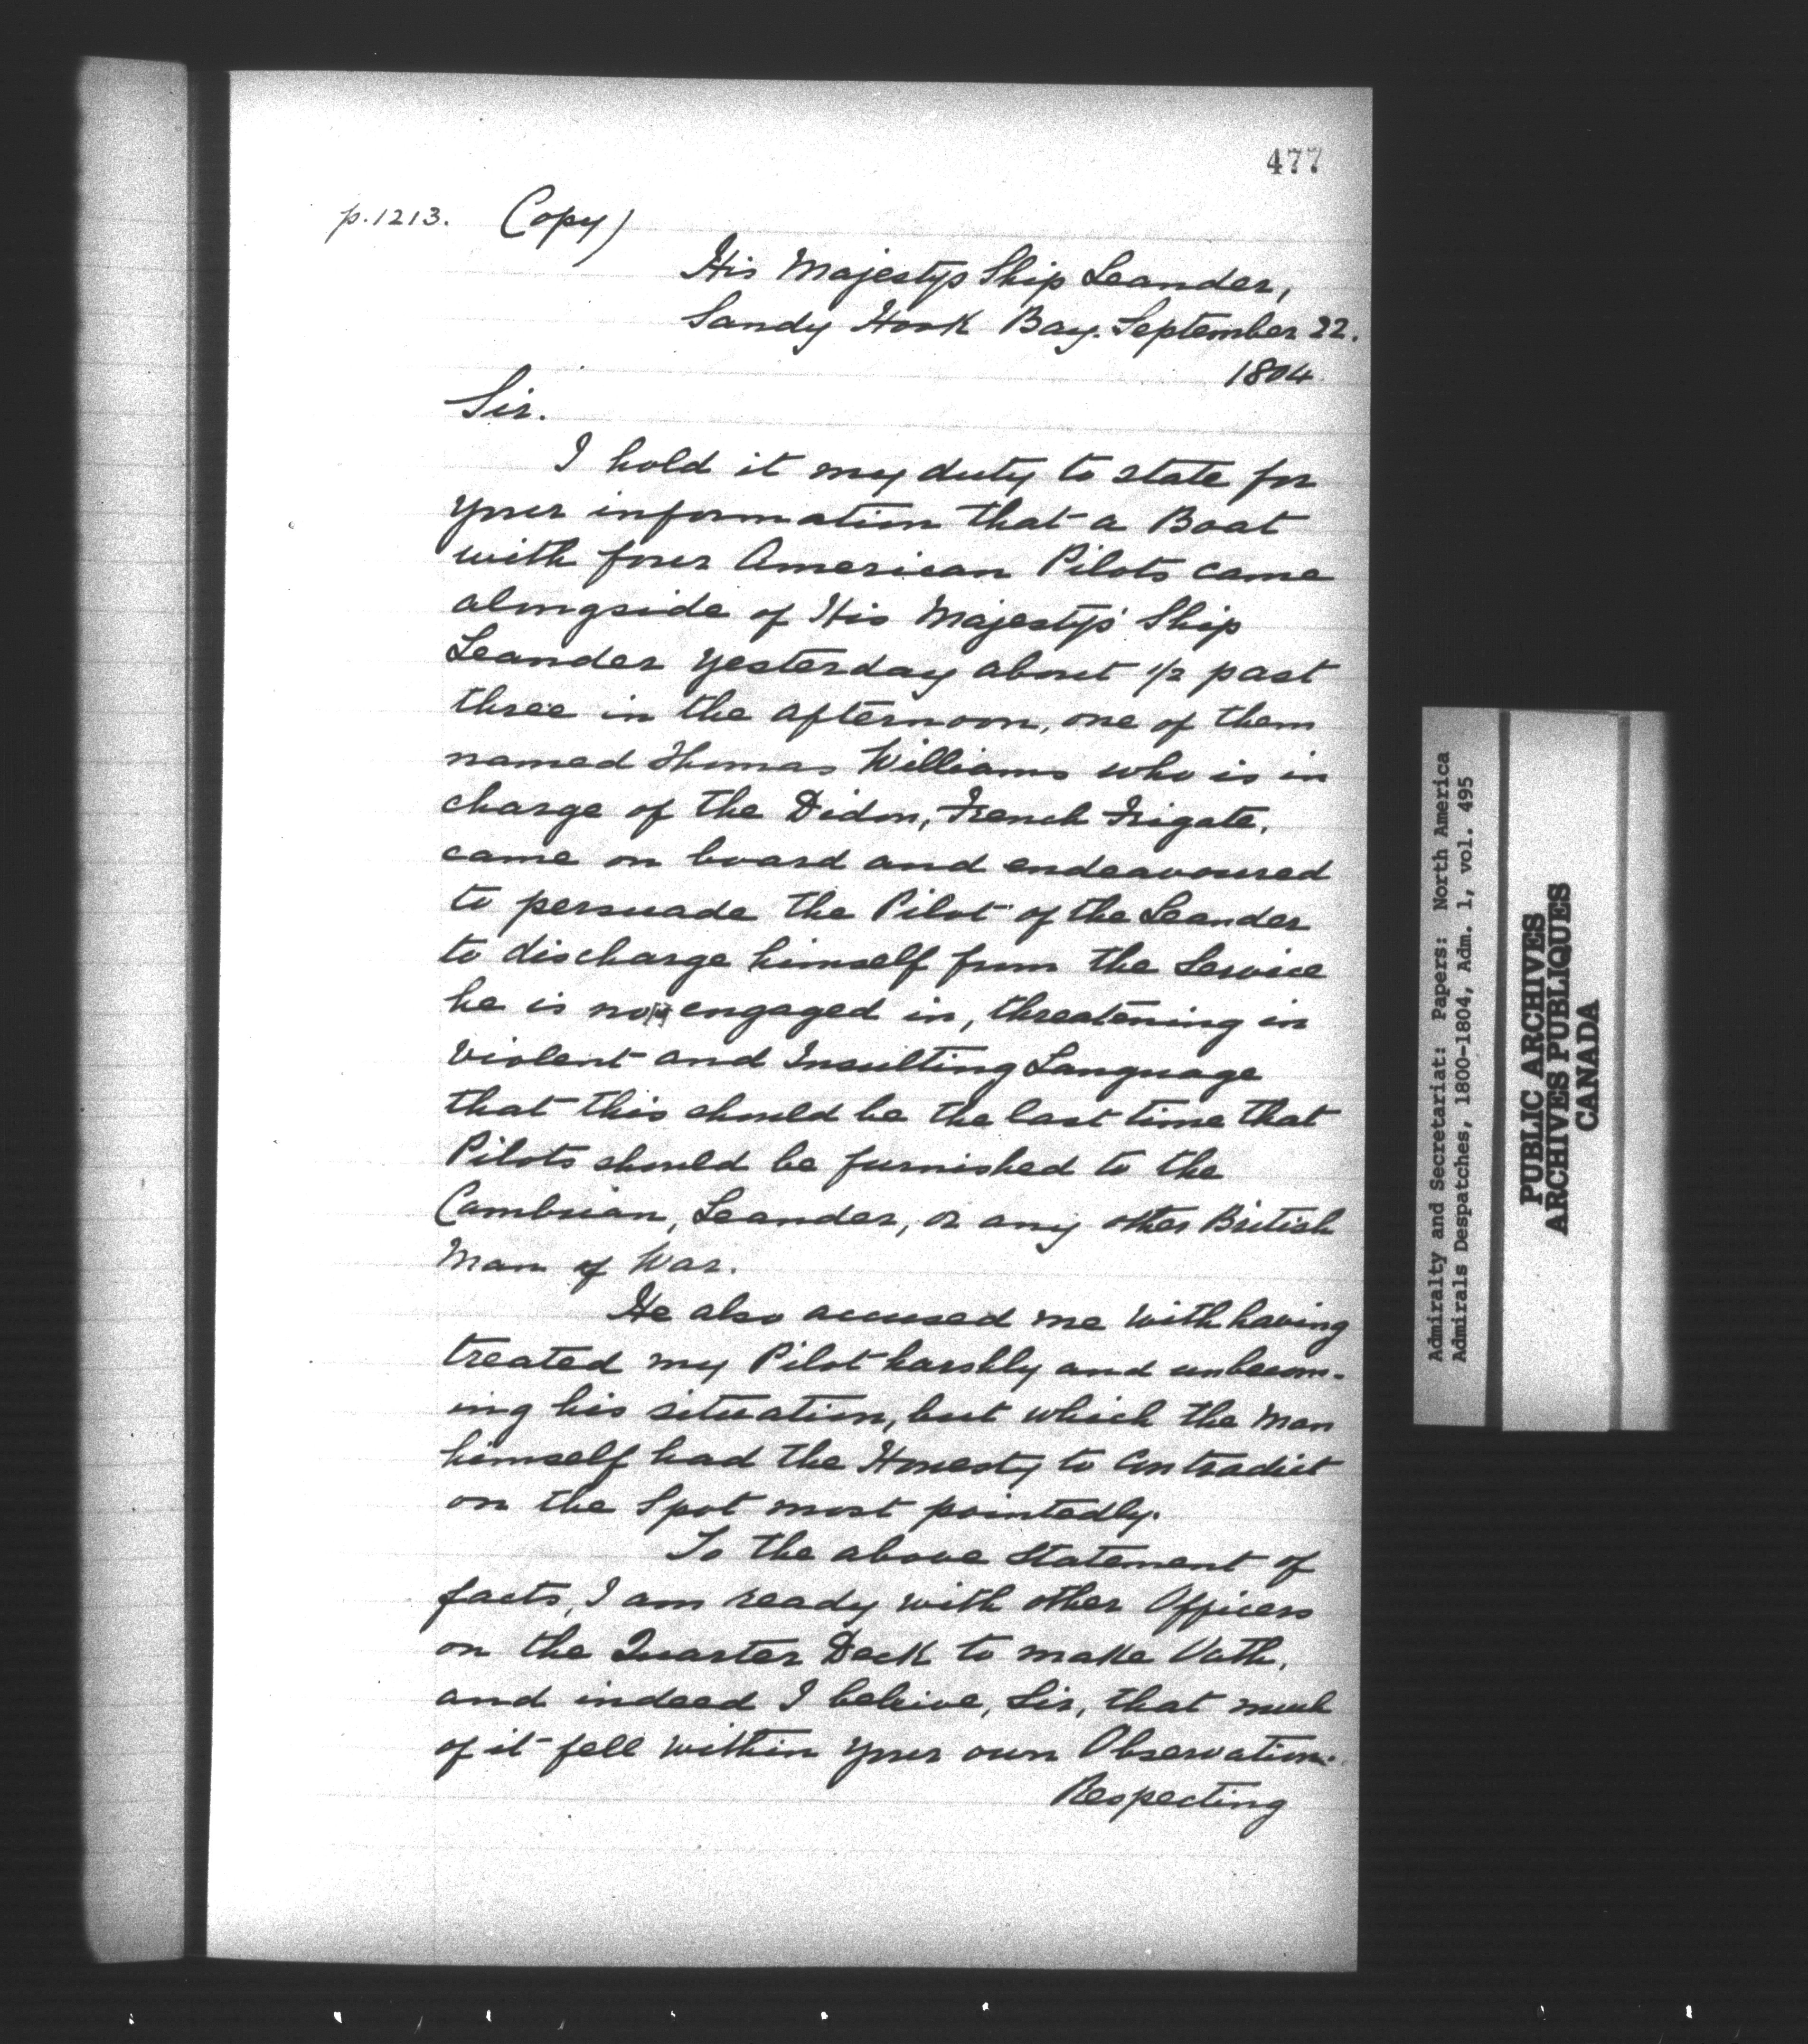 477
p.1213. (Copy)
His Majestys Ship Leander,
Sandy Hook Bay. September 22.
1804
Sir.
I hold it my duty to state for
your information that a Boat
with four American Pilots came
alongside of His Majestys' Ship
Leander yesterday about 1/2 past
three in the afternoon, one of them
named Thomas Williams who is in
charge of the Didon, French Frigate,
came on board and endeavoured
to persuade the Pilot of the Leander
to discharge himself from the Service
he is now engaged in, threatening in
violent and Insulting Language
that this should be the last time that
Pilots should be furnished to the
Cambrian, Leander, or any other British
Man of War.
He also accused me with having
treated my Pilot harshly and unbecom-
ing his situation, but which the Man
himself had the Honesty to Contradict
on the Spot most pointedly.
To the above Statement of
facts, I am ready with other Officers
on the Quarter Deck to make Oath,
and indeed I beleive, Sir, that much
of it fell within your own Observation.
Respecting
Admiralty and Secretariat: Papers: North America
Admirals Despatches, 1800-1804, Adm. 1, vol. 495
PUBLIC ARCHIVES
ARCHIVES PUBLIQUES
CANADA